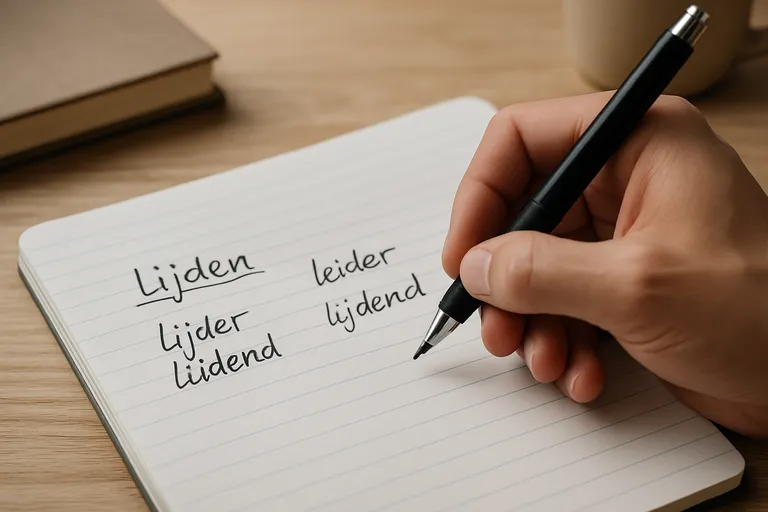 Lijden
Lijder
Liidend
leider
lijdend